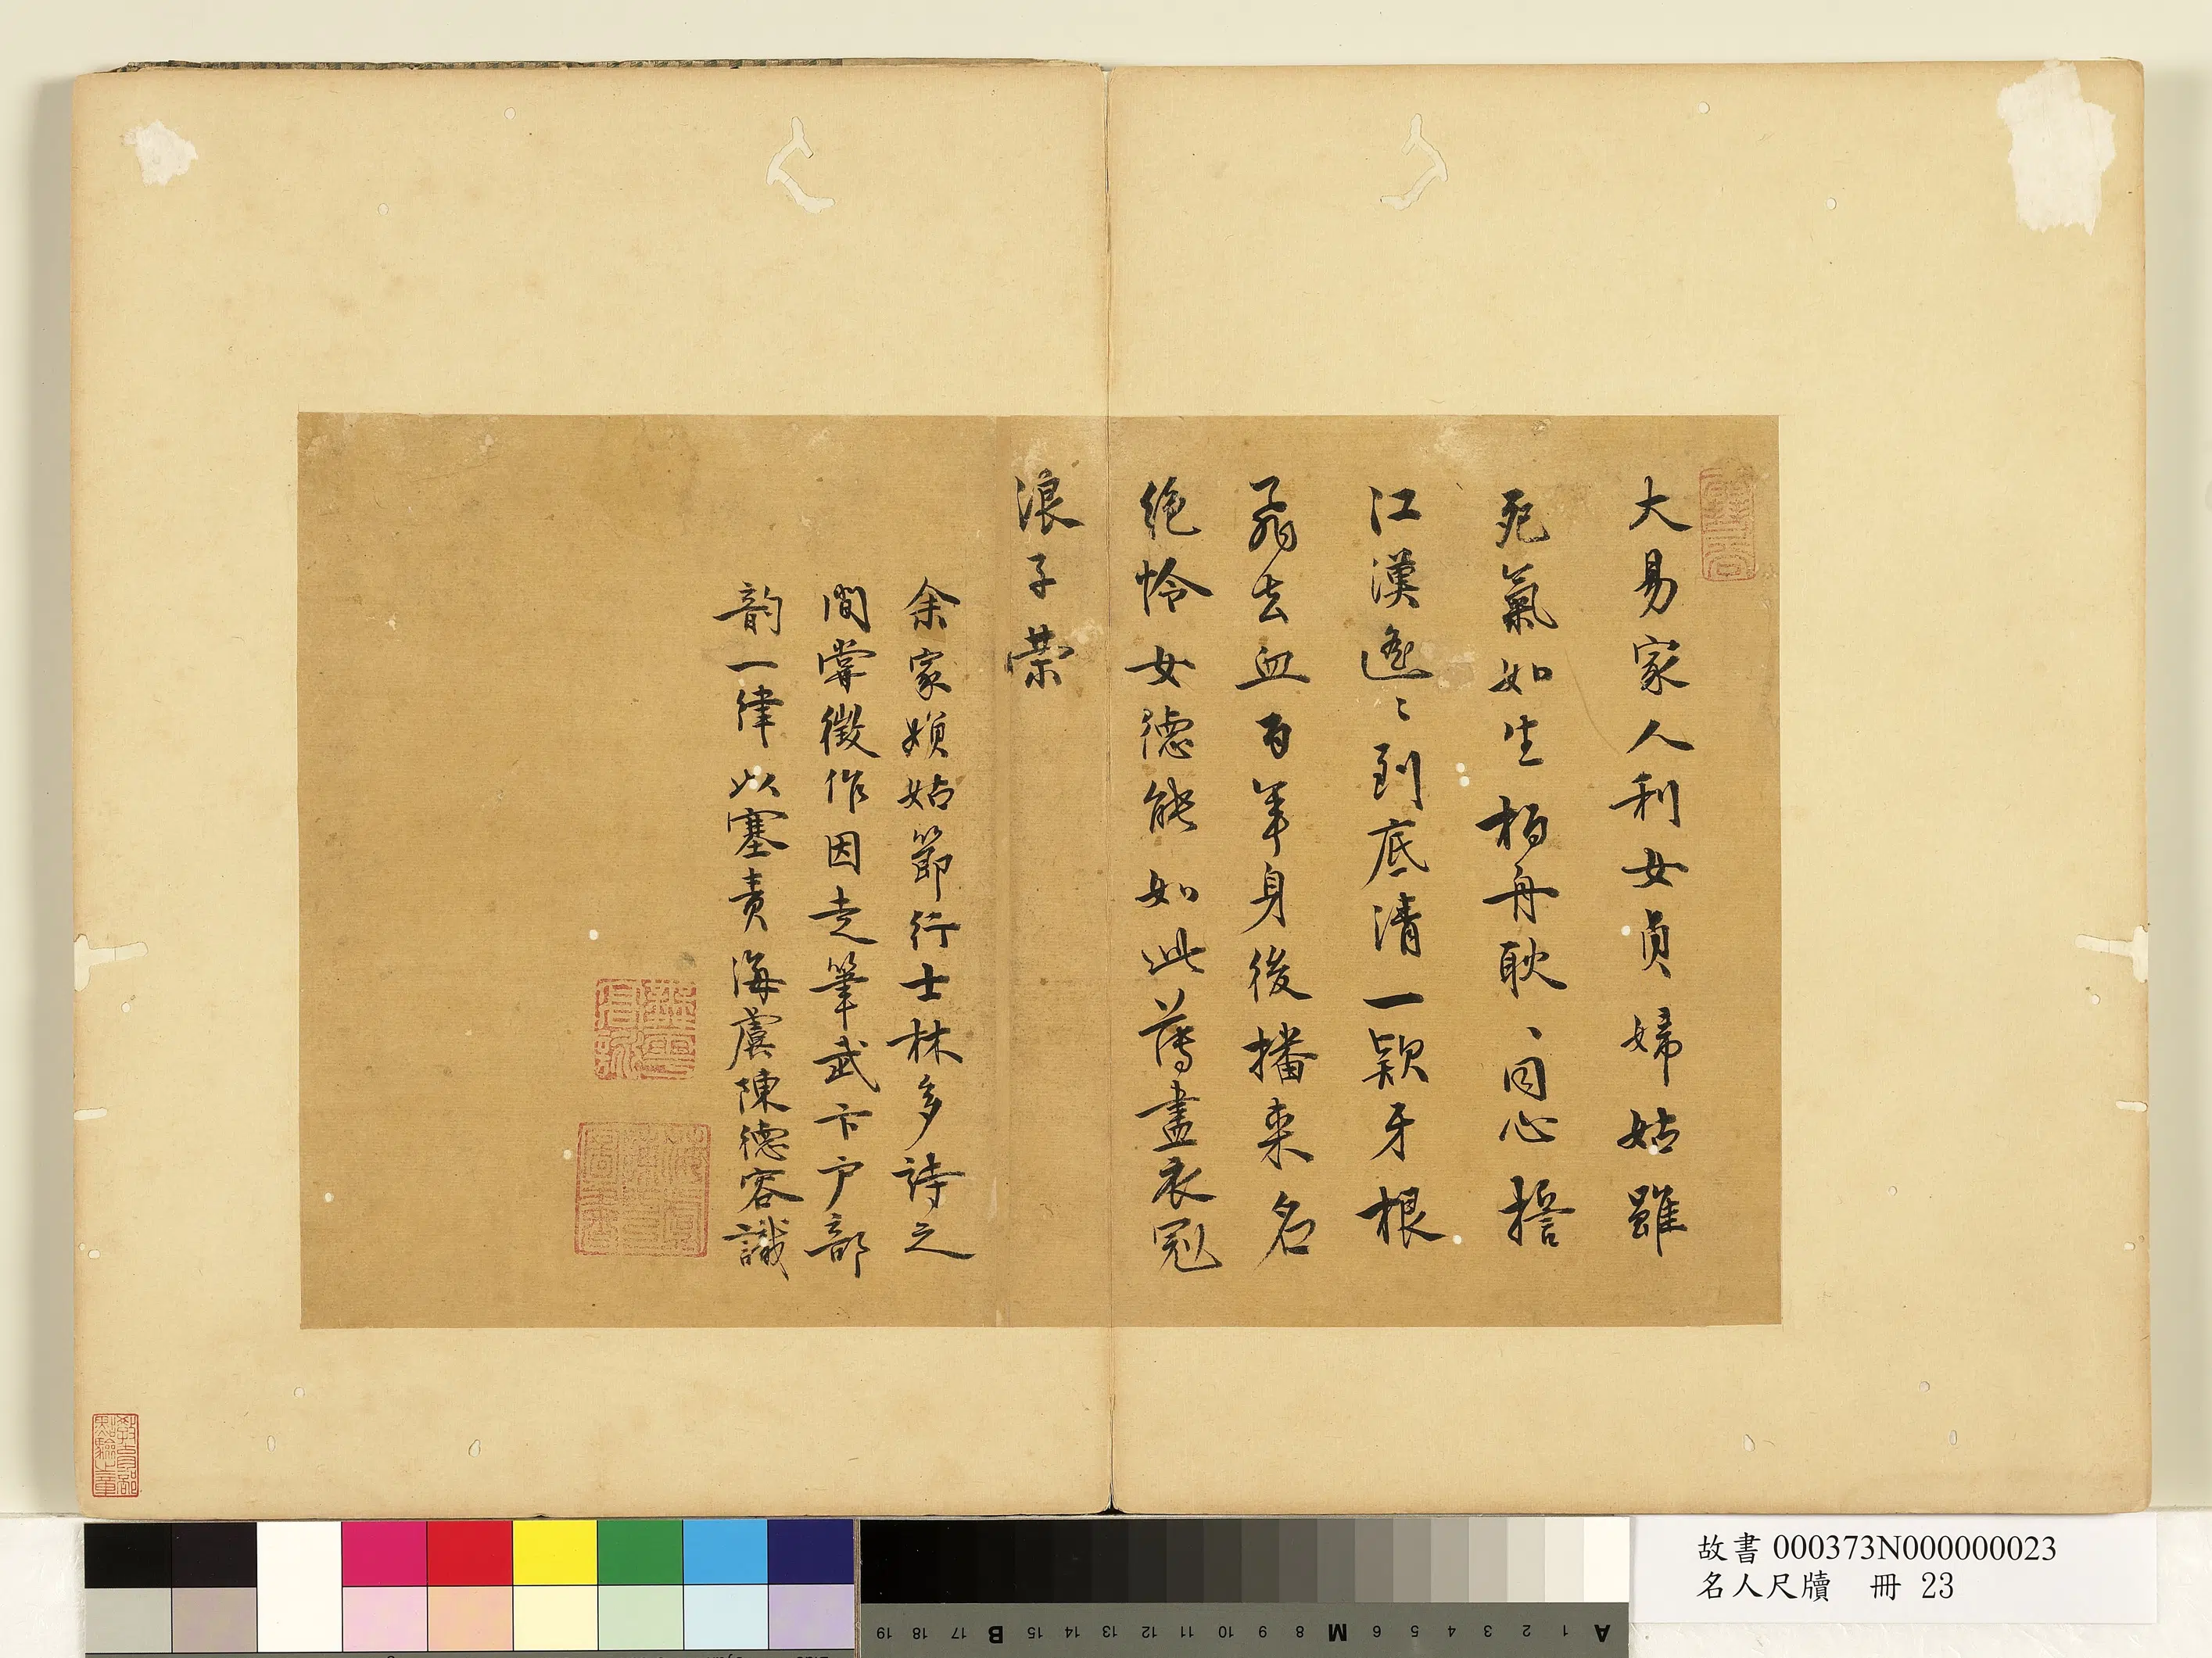 大易家人利女貞婦姑雖
死氣如生柏舟耿、同心誓
江漢遙〻到底清一顆牙根
翦去血百年身後播來名
絕憐女德能如此薄盡衣冠
浪子榮
余家嬪姑節行士林多詩之
間嘗徵作因走筆武卞户部
韵一律以塞責海虞陳德容識
教育部點驗之章
故書 000373N000000023
名人尺牘 冊 23
A 1 2 3 4 5 6 M 8 9 10 11 12 13 14 15 B 17 18 19